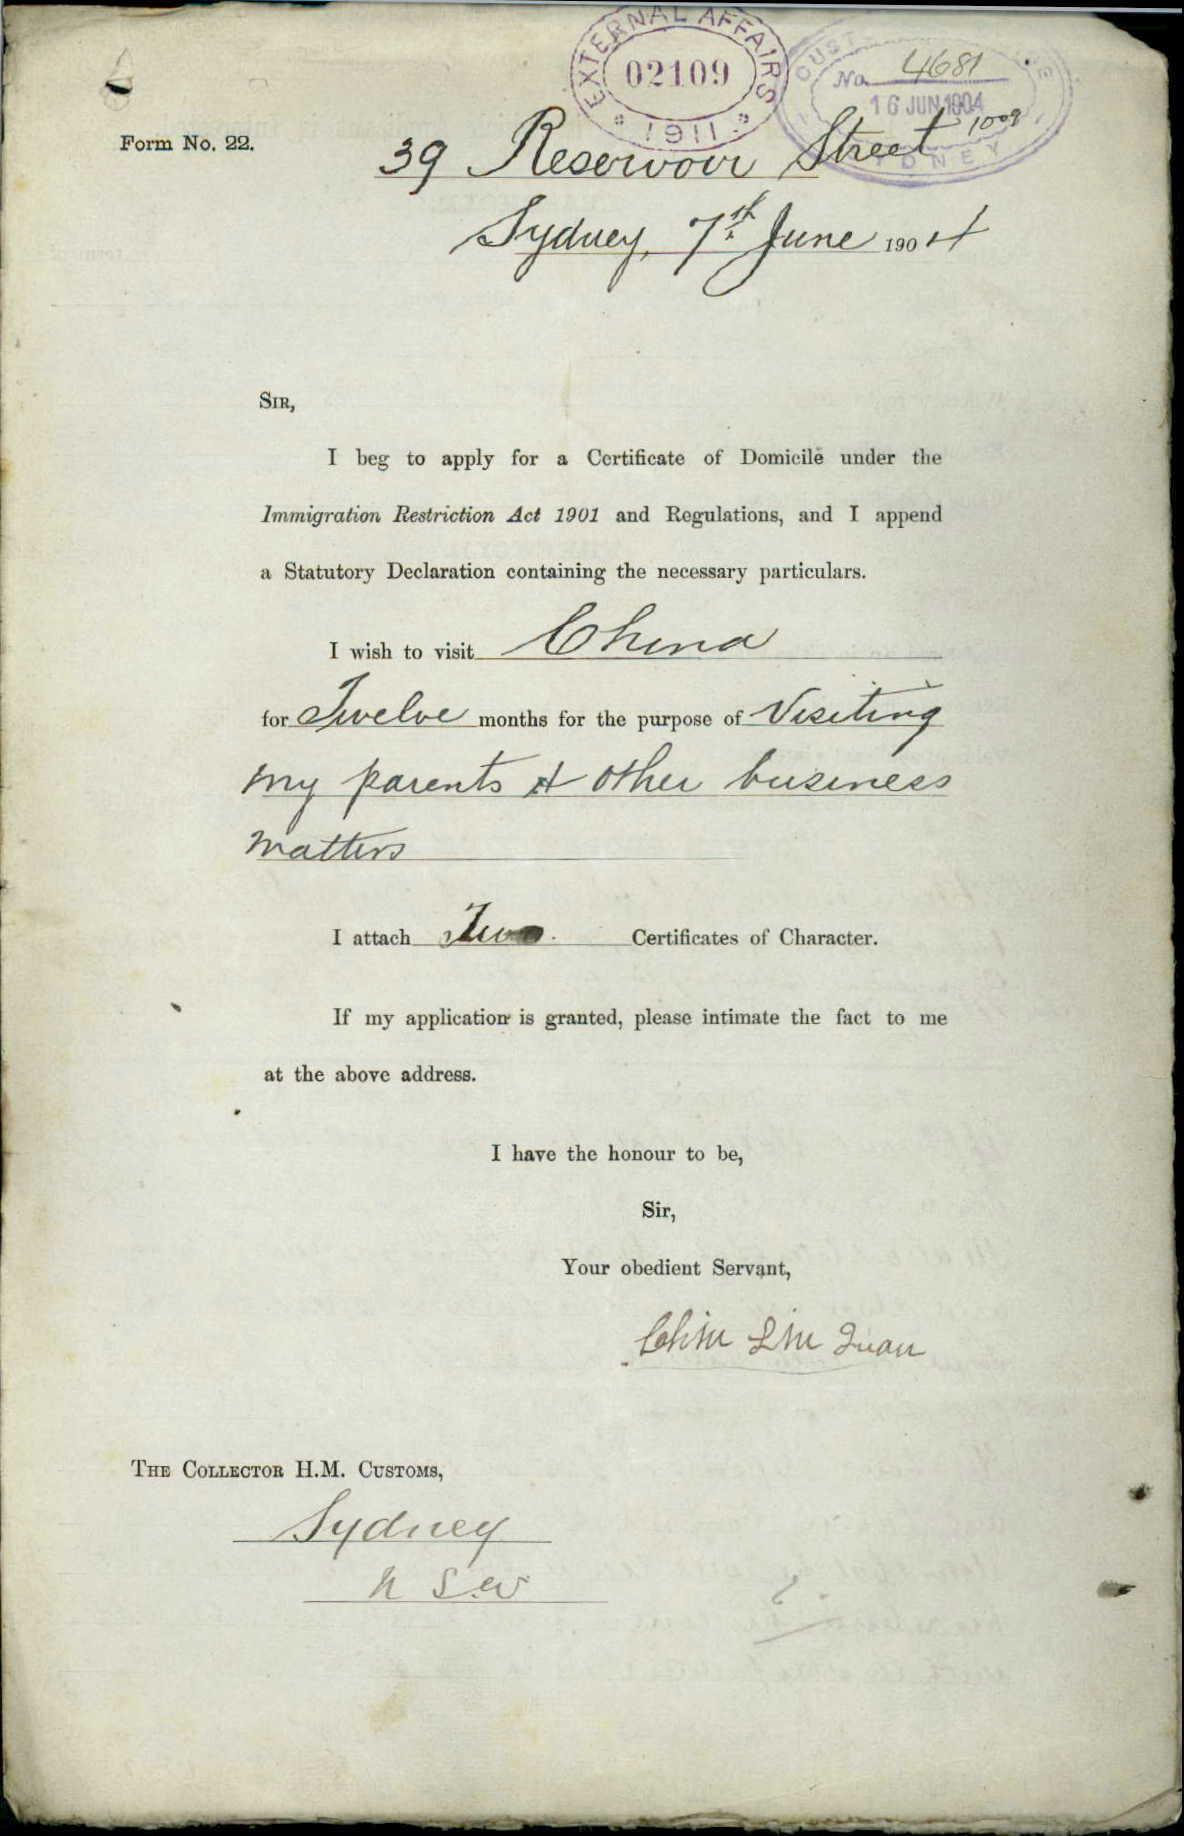 EXTERNAL AFFAIRS
02109
1911
No. 4681
16 JUN 1904
SYDNEY
1009
Form No. 22.
39 Reservoir Street
Sydney, 7st June 1904
SIR,
I beg to apply for a Certificate of Domicile under the
Immigration Restriction Act 1901 and Regulations, and I append
a Statutory Declaration containing the necessary particulars.
I wish to visit China
for Twelve months for the purpose of Visiting
my parents & other business
matters
I attach Two. Certificates of Character.
If my application is granted, please intimate the fact to me
at the above address.
I have the honour to be,
Sir,
Your obedient Servant,
Chin Lin Quan
THE COLLECTOR H.M. CUSTOMS,
Sydney
N S.W